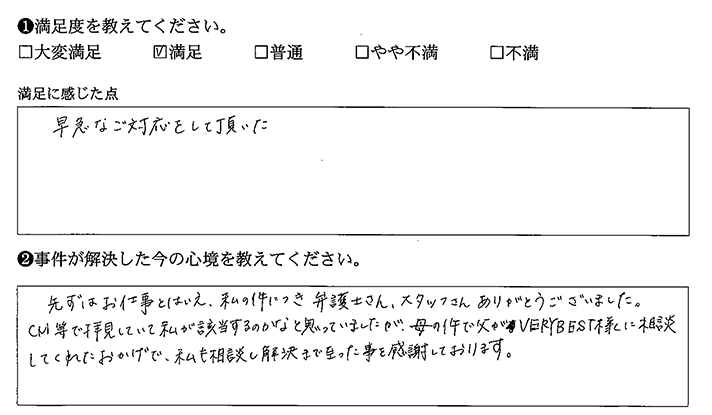 ❶満足度を教えてください。
□大変満足 ☑満足 □普通 □やや不満 □不満
満足に感じた点
早急なご対応をして頂いた
❷事件が解決した今の心境を教えてください。
先ずはお仕事とはいえ、私の件につき弁護士さん、スタッフさんありがとうございました。
CM等で拝見していて私が該当するのかなと思っていましたが、母の件で父がVERYBEST様に相談
してくれたおかげで、私も相談し解決まで至った事を感謝しております。